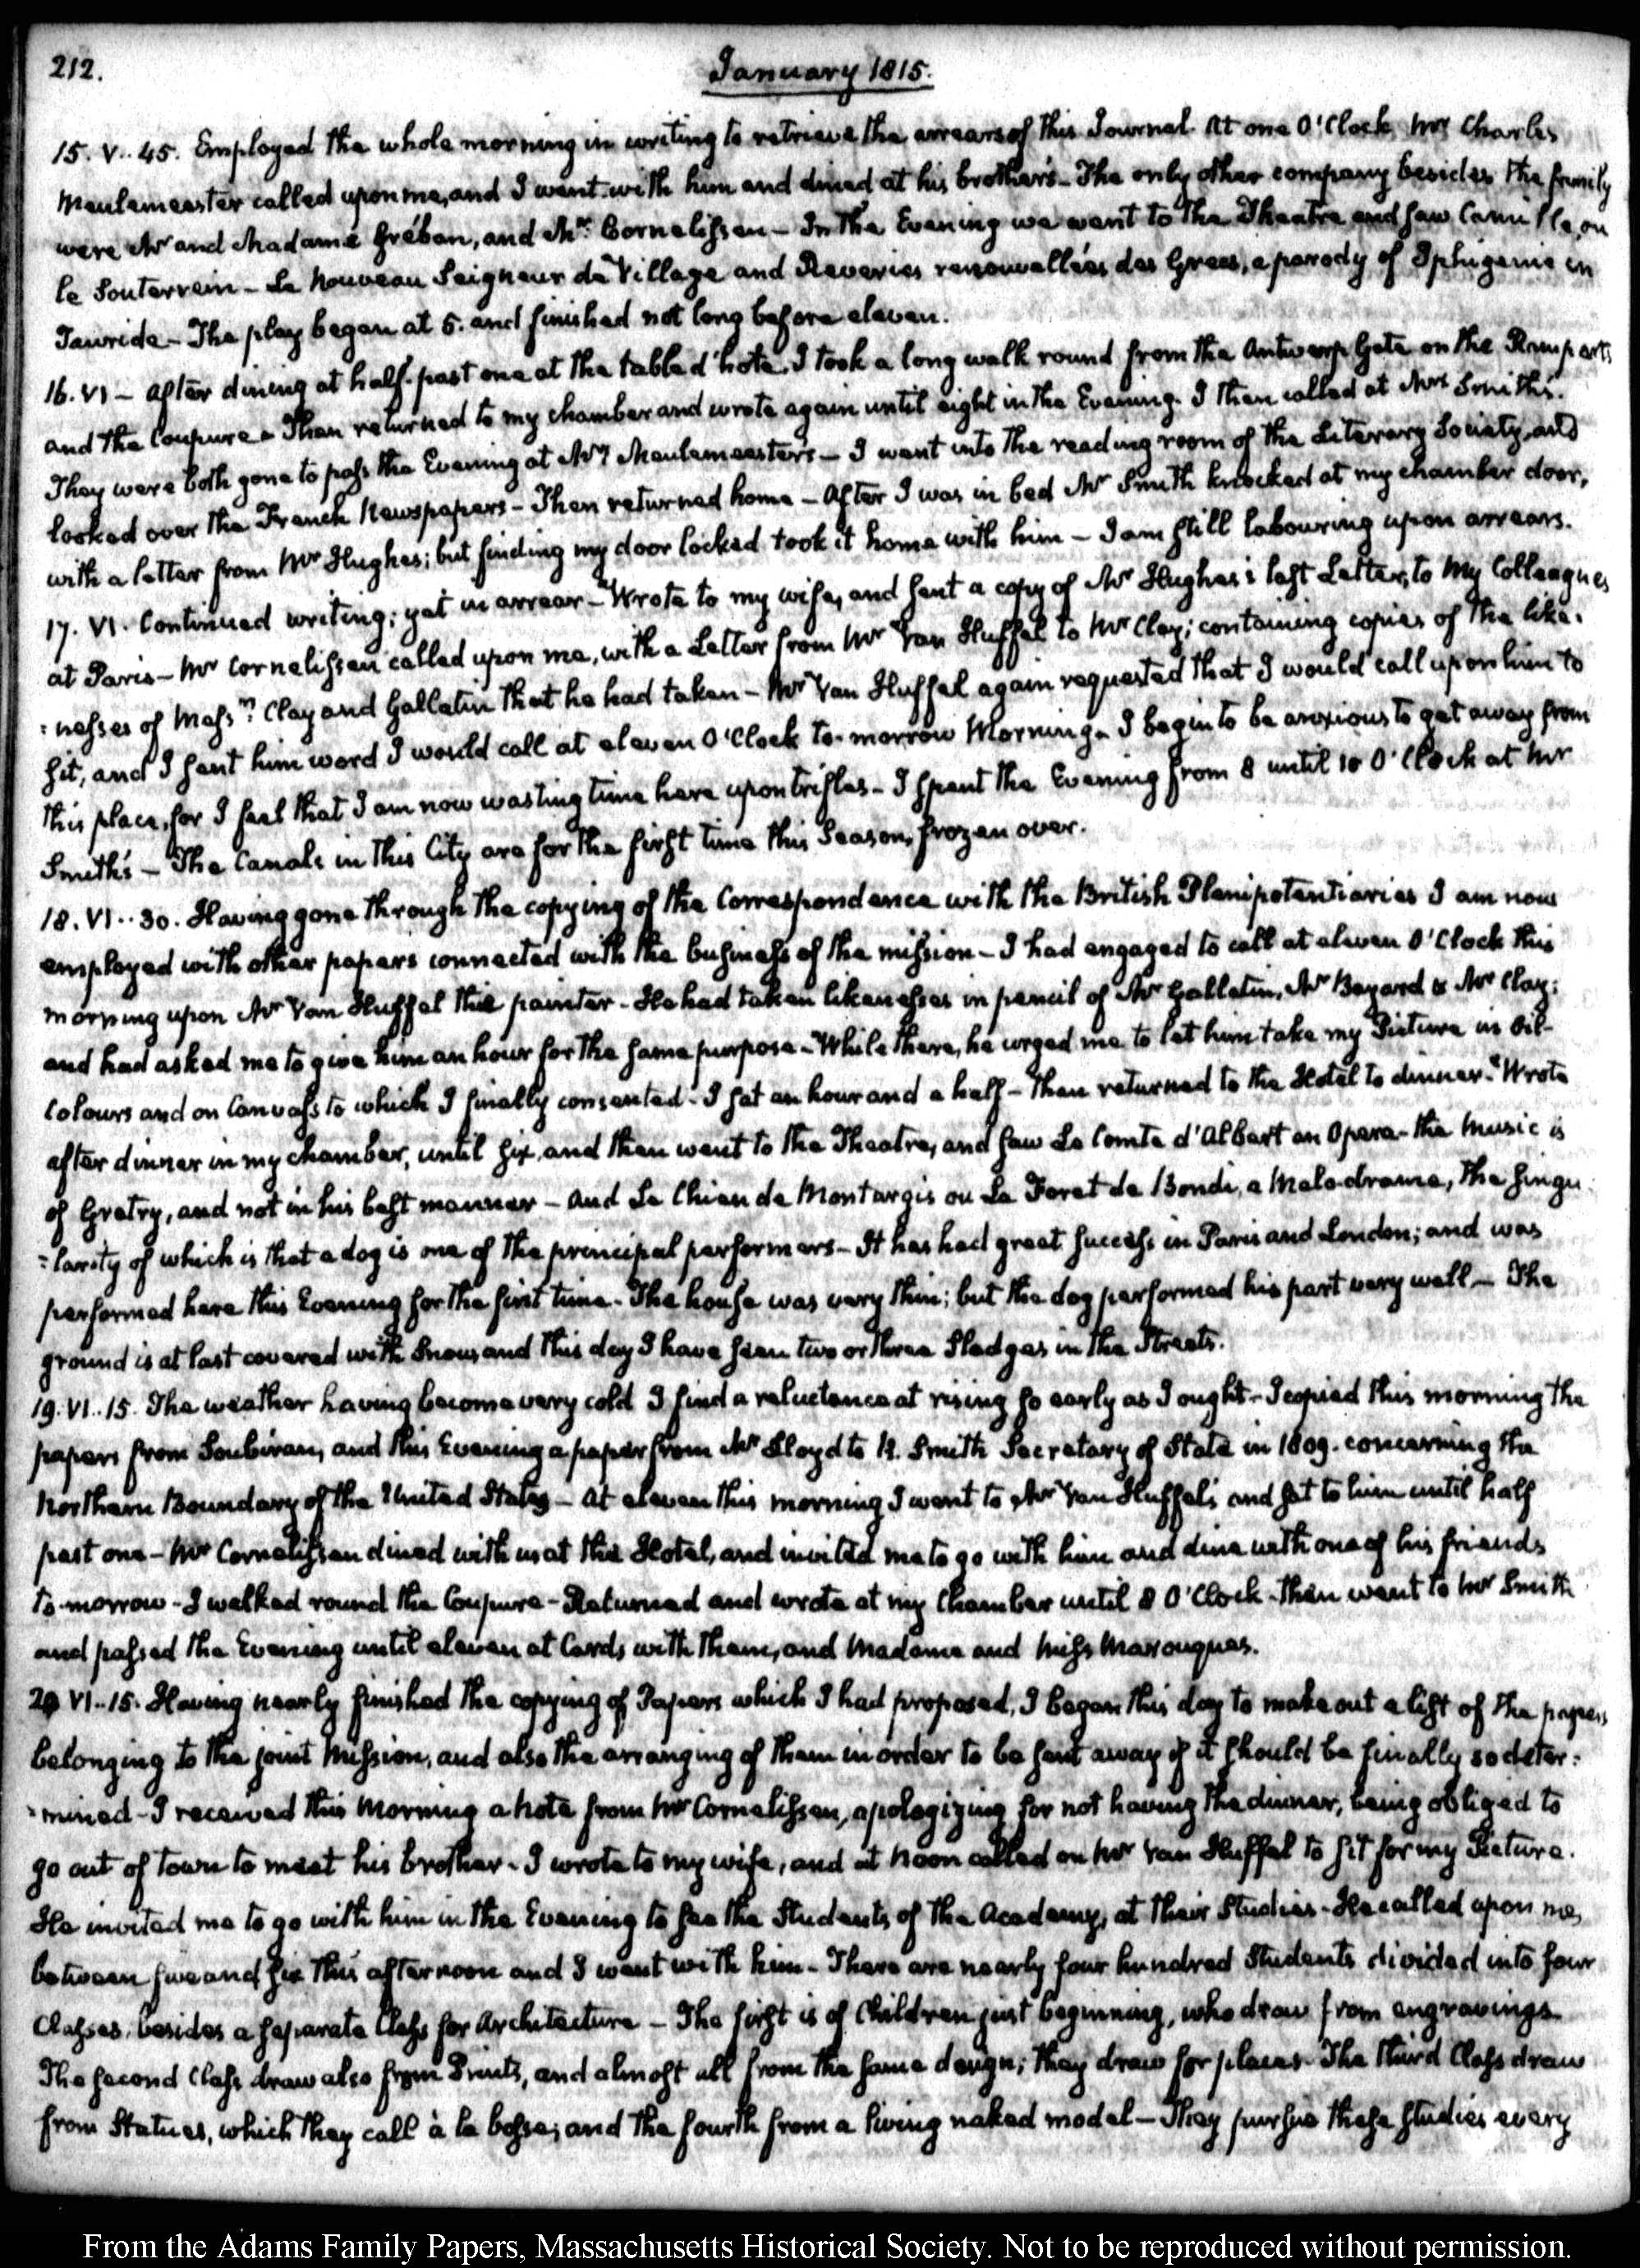 212.
January 1815.
15. V..45. Employed the whole morning in writing to retrieve the arrears of this Journal. At one O'Clock, Mr Charles
Meulemeester called upon me, and I went with him and dined at his brother's - The only other company besides the family
were Mr and Madame Gréban, and Mr. Cornelissen - In the Evening we went to the Theatre and saw Camille, ou
le Souterrein - Le Nouveau Seigneur de Village and Reveries renouvellées des Grecs, a parody of Iphigenie en
Tauride - The play began at 5. and finished not long before eleven.
16. VI - After dining at half-past one at the table d'hote, I took a long walk round from the Antwerp Gate on the Ramparts
and the Coupure - Then returned to my chamber and wrote again until eight in the Evening. I then called at Mr Smith's.
They were both gone to pass the Evening at Mr Meulemeester's - I went into the reading room of the Literary Society, and
looked over the French Newspapers - Then returned home - After I was in bed Mr Smith knocked at my chamber door,
with a letter from Mr Hughes; but finding my door locked took it home with him - I am still labouring upon arrears.
17. VI. Continued writing; yet in arrear - Wrote to my wife, and sent a copy of Mr Hughes's last Letter, to my Colleagues
at Paris - Mr Cornelissen called upon me, with a Letter from Mr Van Huffel to Mr Clay; containing copies of the like:
:nesses of Messrs Clay and Gallatin that he had taken - Mr Van Huffel again requested that I would call upon him to
sit, and I sent him word I would call at eleven O'Clock to-morrow Morning. I begin to be anxious to get away from
this place, for I feel that I am now wasting time here upon trifles - I spent the Evening from 8 until 10 O'Clock at Mr
Smith's - The Canals in this City are for the first time this Season, frozen over.
18. VI..30. Having gone through the copying of the Correspondence with the British Plenipotentiaries I am now
employed with other papers connected with the business of the mission - I had engaged to call at eleven O'Clock this
morning upon Mr Van Huffel the painter - He had taken likenesses in pencil of Mr Gallatin, Mr Bayard & Mr Clay;
and had asked me to give him an hour for the same purpose - While there, he urged me to let him take my Picture in Oil-
Colours and on Canvass to which I finally consented - I sat an hour and a half - Then returned to the Hotel to dinner - Wrote
after dinner in my chamber, until six, and then went to the Theatre, and saw Le Comte d'Albert an Opera - the Music is
of Gretry, and not in his best manner - and Le Chien de Montargis ou La Foret de Bondi, a Melo-drame, the singu:
:larity of which is that a dog is one of the principal performers - It has had great success in Paris and London; and was
performed here this Evening for the first time - The house was very thin; but the dog performed his part very well - The
ground is at last covered with Snow, and this day I have seen two or three Sledges in the Streets.
19. VI..15. The weather having become very cold I find a reluctance at rising so early as I ought - I copied this morning the
papers from Soubiran, and this Evening a paper from Mr Lloyd to R. Smith Secretary of State in 1809. concerning the
Northern Boundary of the United States - At eleven this morning I went to Mr Van Huffel's and sat to him until half
past one - Mr Cornelissen dined with us at the Hotel, and invited me to go with him and dine with one of his friends
to-morrow - I walked round the Coupure - Returned and wrote at my Chamber until 8 O'Clock - Then went to Mr Smith
and passed the Evening until eleven at Cards with them, and Madame and Miss Marouques.
20 VI..15. Having nearly finished the copying of Papers which I had proposed, I began this day to make out a list of the papers
belonging to the joint Mission, and also the arranging of them in order to be sent away if it should be finally so deter:
:mined - I received this Morning a Note from Mr Cornelissen, apologizing for not having the dinner, being obliged to
go out of town to meet his brother - I wrote to my wife, and at Noon called on Mr Van Huffel to sit for my Picture.
He invited me to go with him in the Evening to see the Students of the Academy, at their Studies - He called upon me,
between five and six this afternoon and I went with him - There are nearly four hundred Students divided into four
Classes, besides a separate Class for Architecture - The first is of Children just beginning, who draw from engravings
The second Class draw also from Prints, and almost all from the same design; they draw for places - The third Class draw
from Statues, which they call à la bosse; and the fourth from a living naked model - They pursue these studies every
From the Adams Family Papers, Massachusetts Historical Society. Not to be reproduced without permission.